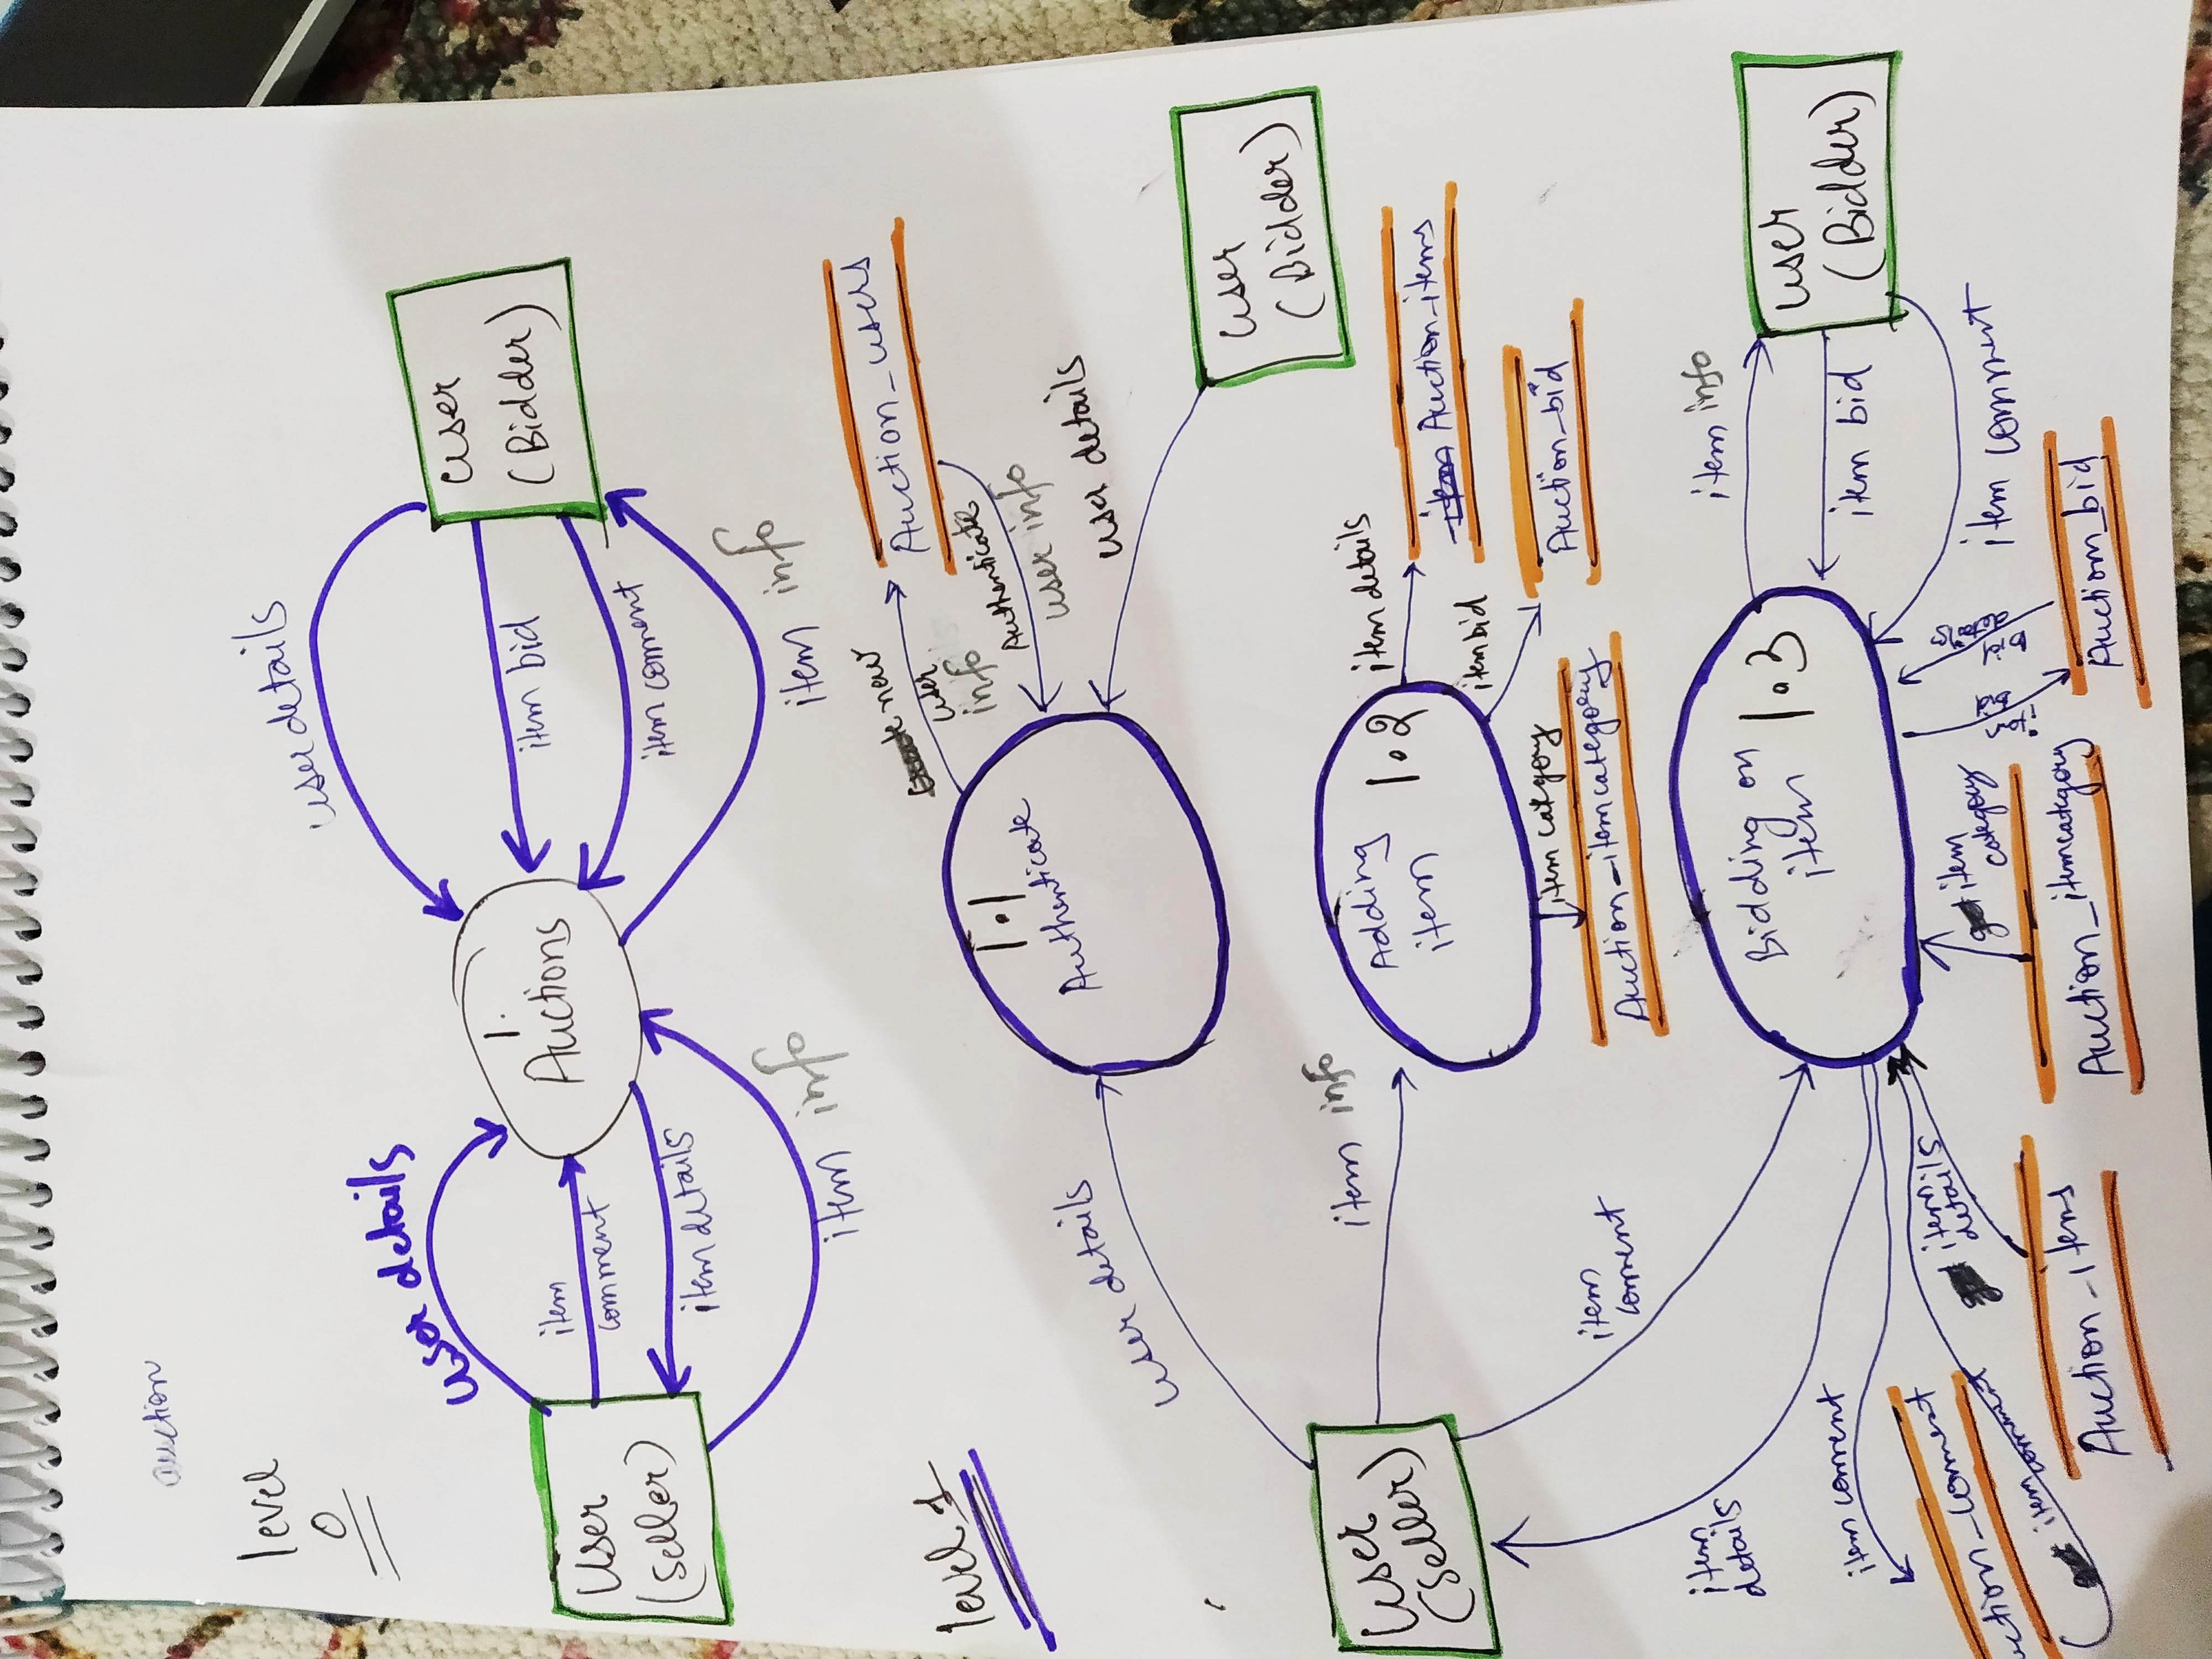 auction
level
0
user details
user details
User
(Seller)
item
comment
item details
item info
1.
Auctions
user
(Bidder)
item bid
item comment
item info
level 1
new
user
info
Auction_users
Authenticate
user info
1.1
Authenticate
user details
user details
user
(Bidder)
User
(Seller)
item info
Adding
item 1.2
item details
Auction_items
item bid
Auction_bid
item category
Auction_itemcategory
item
comment
item
details
Bidding on
item 1.3
item info
user
(Bidder)
item bid
item comment
item comment
uction_comment
item comment
item
details
Auction_items
item
category
Auction_itemcategory
item
bid
bid
details
Auction_bid